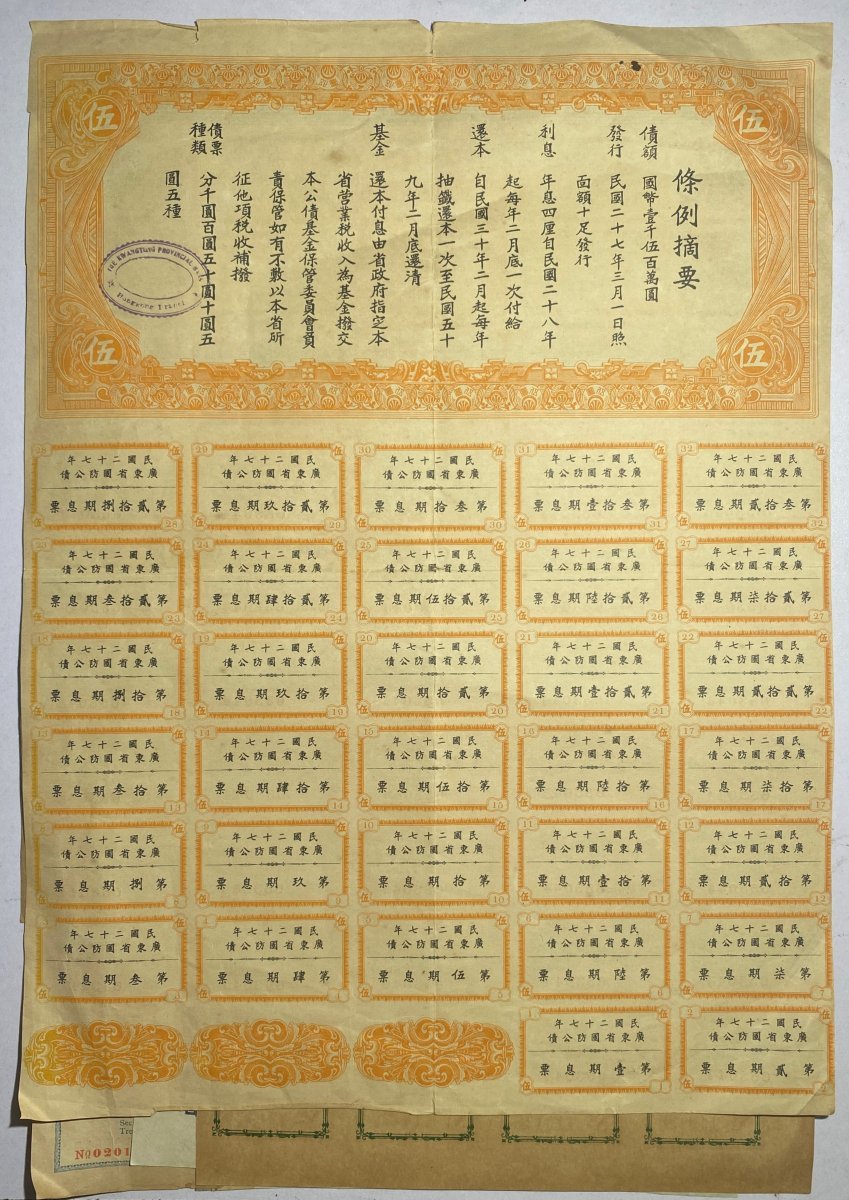 伍
伍
條例摘要
債額 國幣壹千伍百萬圓
發行 民國二十七年三月一日照
面額十足發行
利息 年息四厘自民國二十八年
起每年二月底一次付給
還本 自民國三十年二月起每年
抽籤還本一次至民國五十
九年二月底還清
基金 還本付息由省政府指定本
省營業稅收入為基金撥交
本公債基金保管委員會負
責保管如有不敷以本省所
征他項稅收補撥
債票種類 分千圓百圓五十圓十圓五
圓五種
THE KWANGTUNG PROVINCIAL BANK
Hongkong Branch
伍
伍
32 伍
民國二十七年
廣東省國防公債
第叁拾貳期息票
伍 32
31 伍
民國二十七年
廣東省國防公債
第叁拾壹期息票
伍 31
30 伍
民國二十七年
廣東省國防公債
第叁拾期息票
伍 30
29 伍
民國二十七年
廣東省國防公債
第貳拾玖期息票
伍 29
28 伍
民國二十七年
廣東省國防公債
第貳拾捌期息票
伍 28
27 伍
民國二十七年
廣東省國防公債
第貳拾柒期息票
伍 27
26 伍
民國二十七年
廣東省國防公債
第貳拾陸期息票
伍 26
25 伍
民國二十七年
廣東省國防公債
第貳拾伍期息票
伍 25
24 伍
民國二十七年
廣東省國防公債
第貳拾肆期息票
伍 24
23 伍
民國二十七年
廣東省國防公債
第貳拾叁期息票
伍 23
22 伍
民國二十七年
廣東省國防公債
第貳拾貳期息票
伍 22
21 伍
民國二十七年
廣東省國防公債
第貳拾壹期息票
伍 21
20 伍
民國二十七年
廣東省國防公債
第貳拾期息票
伍 20
19 伍
民國二十七年
廣東省國防公債
第拾玖期息票
伍 19
18 伍
民國二十七年
廣東省國防公債
第拾捌期息票
伍 18
17 伍
民國二十七年
廣東省國防公債
第拾柒期息票
伍 17
16 伍
民國二十七年
廣東省國防公債
第拾陸期息票
伍 16
15 伍
民國二十七年
廣東省國防公債
第拾伍期息票
伍 15
14 伍
民國二十七年
廣東省國防公債
第拾肆期息票
伍 14
13 伍
民國二十七年
廣東省國防公債
第拾叁期息票
伍 13
12 伍
民國二十七年
廣東省國防公債
第拾貳期息票
伍 12
11 伍
民國二十七年
廣東省國防公債
第拾壹期息票
伍 11
10 伍
民國二十七年
廣東省國防公債
第拾期息票
伍 10
9 伍
民國二十七年
廣東省國防公債
第玖期息票
伍 9
8 伍
民國二十七年
廣東省國防公債
第捌期息票
伍 8
7 伍
民國二十七年
廣東省國防公債
第柒期息票
伍 7
6 伍
民國二十七年
廣東省國防公債
第陸期息票
伍 6
5 伍
民國二十七年
廣東省國防公債
第伍期息票
伍 5
4 伍
民國二十七年
廣東省國防公債
第肆期息票
伍 4
3 伍
民國二十七年
廣東省國防公債
第叁期息票
伍 3
2 伍
民國二十七年
廣東省國防公債
第貳期息票
伍 2
1 伍
民國二十七年
廣東省國防公債
第壹期息票
伍 1
Sec
Tre
No 0201